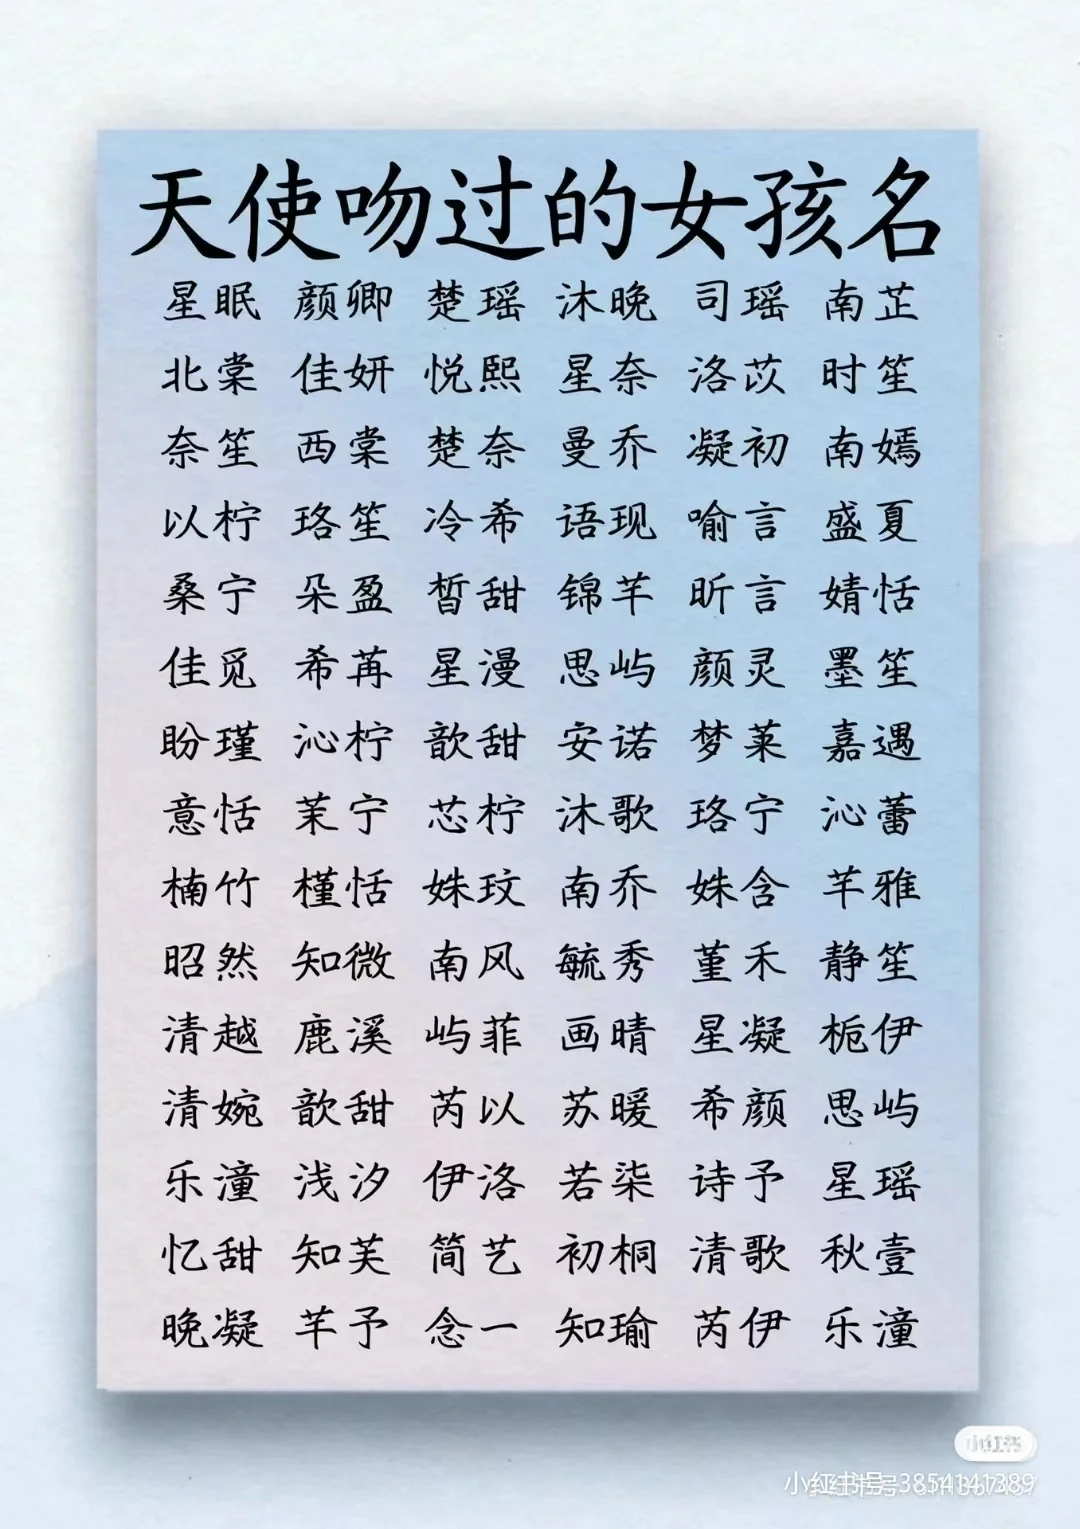 天使吻过的女孩名
星眠 颜卿 楚瑶 沐晚 司瑶 南芷
北棠 佳妍 悦熙 星奈 洛苡 时笙
奈笙 西棠 楚奈 曼乔 凝初 南嫣
以柠 珞笙 冷希 语现 喻言 盛夏
桑宁 朵盈 皙甜 锦芊 昕言 婧恬
佳觅 希苒 星漫 思屿 颜灵 墨笙
盼瑾 沁柠 歆甜 安诺 梦莱 嘉遇
意恬 茉宁 芯柠 沐歌 珞宁 沁蕾
楠竹 槿恬 姝玟 南乔 姝含 芊雅
昭然 知微 南风 毓秀 堇禾 静笙
清越 鹿溪 屿菲 画晴 星凝 栀伊
清婉 歆甜 芮以 苏暖 希颜 思屿
乐潼 浅汐 伊洛 若柒 诗予 星瑶
忆甜 知芙 简艺 初桐 清歌 秋壹
晚凝 芊予 念一 知瑜 芮伊 乐潼
小红书
小红书号